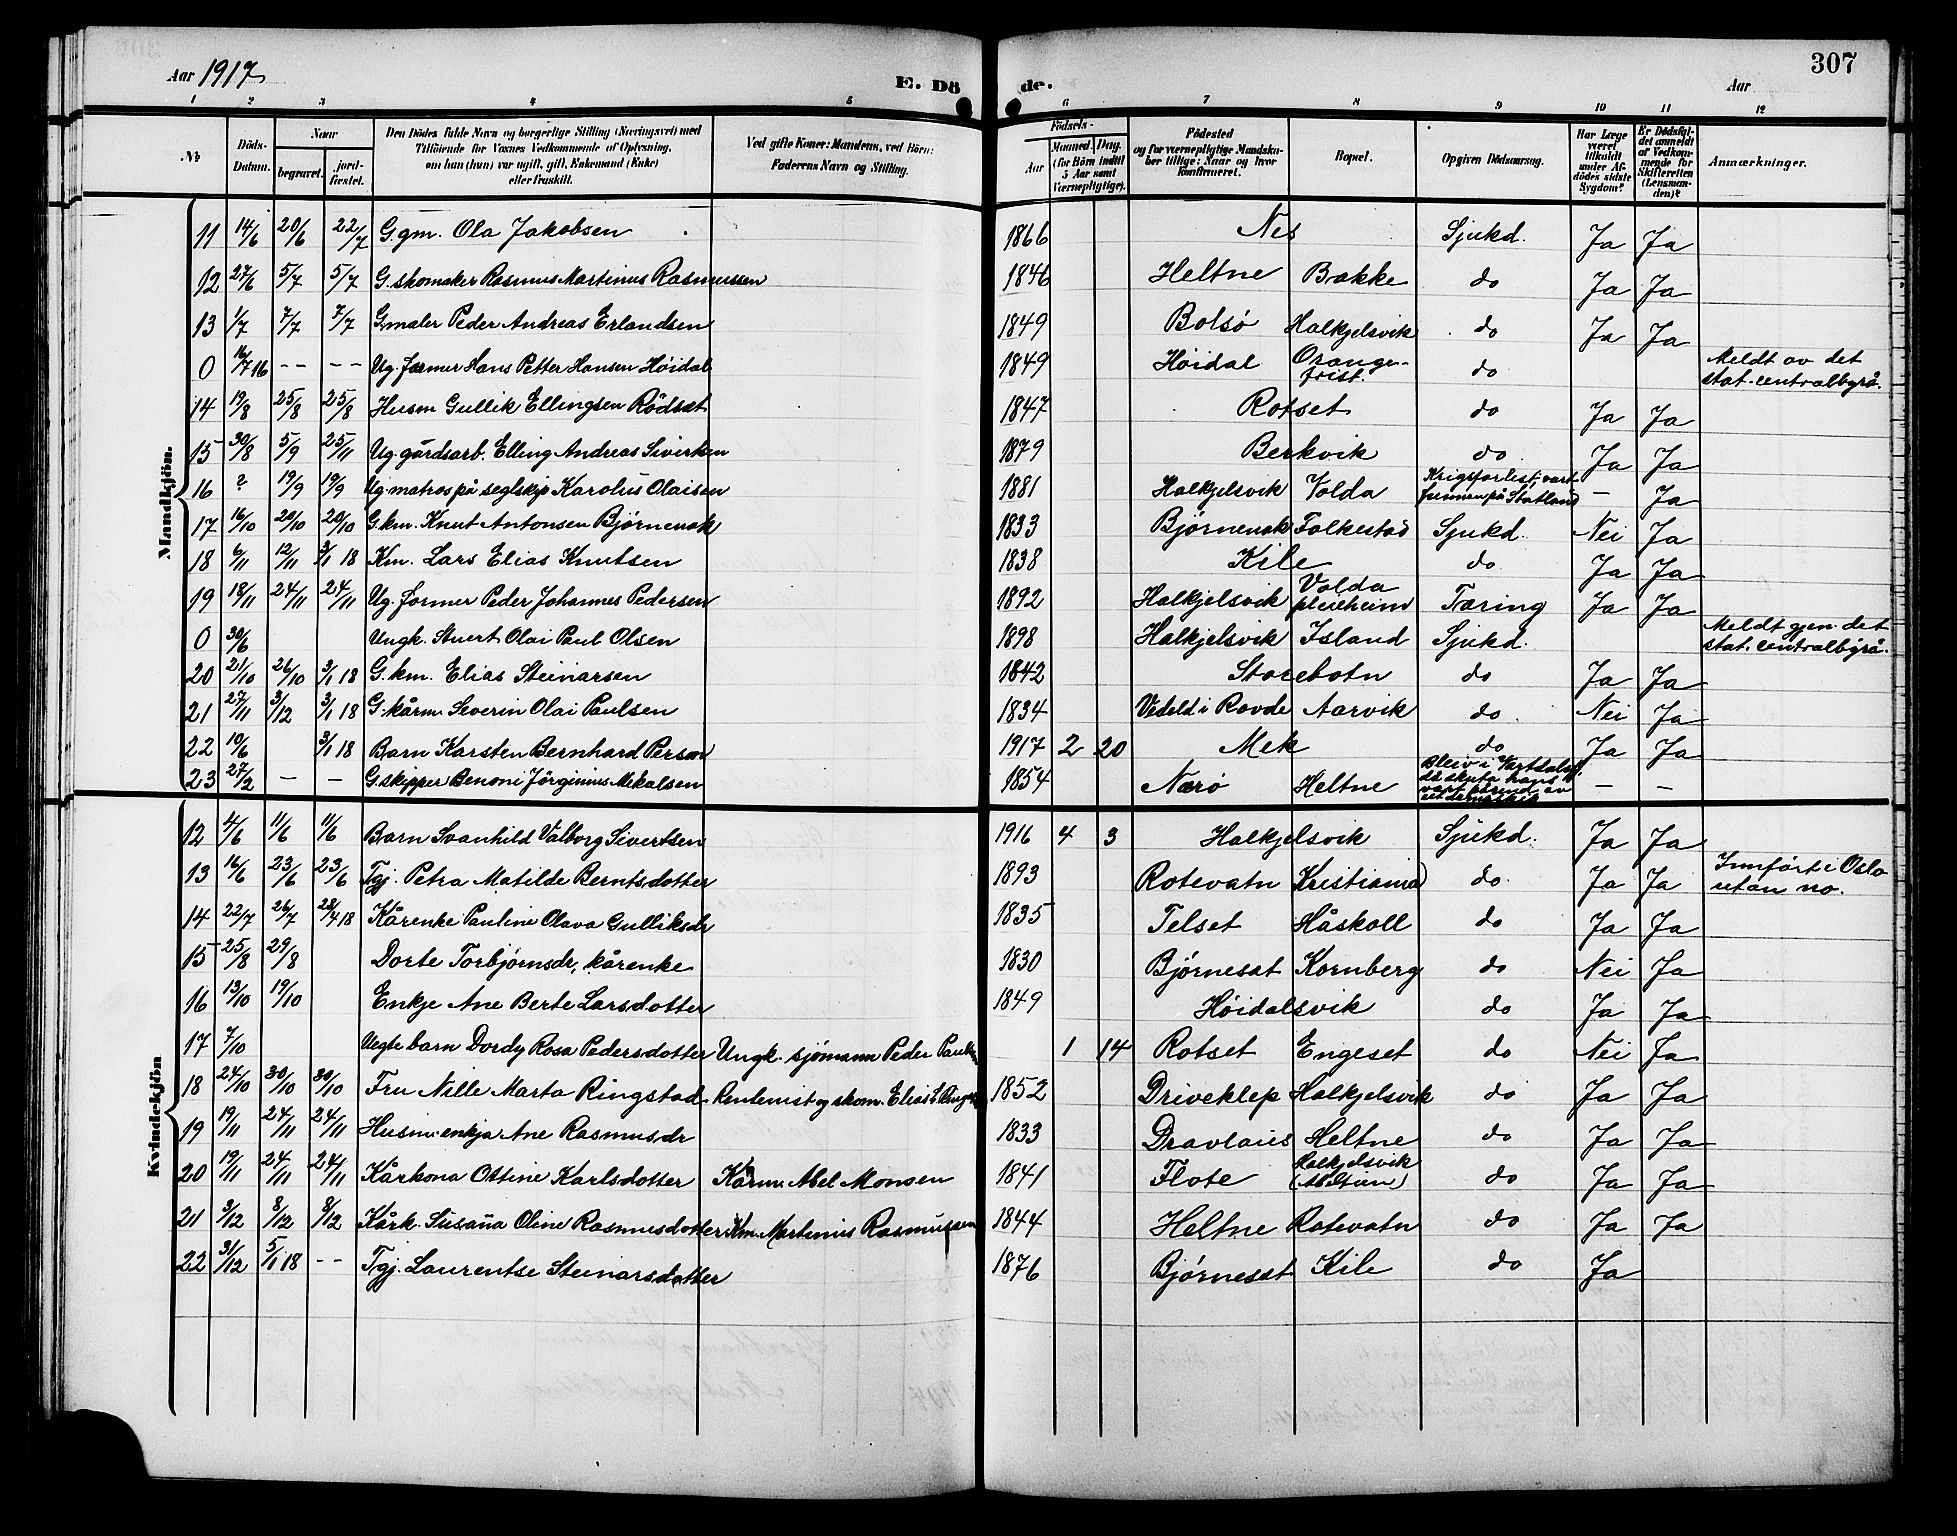 Aar 1917 E. Dö de. Aar 307
1 2 3 4 5 6 7 8 9 10 11 12
No
Döds-Datum.
Naar
begravet.
jord-fæstet.
Den Dödes fulde Navn og borgerlige Stilling (Næringsvei) med
Tilföiende for Voxnes Vedkommende af Oplysning,
om han (hun) var ugift, gift, Enkemand (Enke)
eller fraskilt.
Ved gifte Koner: Mandens, ved Börn:
Faderens Navn og Stilling.
Födsels-
Aar
Maaned Dag.
(for Börn indtil
5 Aar samt
Værnepligtige).
Födested
og for værnepligtige Mandskaber tillige: Naar og hvor
konfirmeret.
Bopæl.
Opgiven Dödsaarsag.
Har Læge
været
tilkaldt
under Afdödes sidste
Sygdom?
Er Dödsfaldet anmeldt
af Vedkommende for
Skifteretten
(Lensmanden)?
Anmærkninger.
Mandkjön.
11 14/6 20/6 22/7 G. gm. Ola Jakobsen 1866 Nes Sjukd. Ja Ja
12 27/6 5/7 5/7 G. skomaker Rasmus Martinus Rasmussen 1846 Heltne Bakke do Ja Ja
13 1/7 7/7 7/7 G. maler Peder Andreas Erlandsen 1849 Bolsø Halkjelsvik do Ja Ja
0 16/7 16 -- -- Ug. farmer Hans Petter Hansen Høidal 1849 Høidal Orange-frist. do Meldt av det stat. centralbyrå.
14 19/8 25/8 25/8 Husm Gullik Ellingsen Rödsæt 1847 Rotset do Ja Ja
15 30/8 5/9 25/11 Ug. gårdsarb. Elling Andreas Sivertsen 1879 Berkvik do Ja Ja
16 ? 19/9 19/9 Ug. matros på seglskip Karolus Olaisen 1881 Halkjelsvik Volda Krigsforlist, vart funnen på Statland – Ja
17 16/10 20/10 20/10 G. km. Knut Antonsen Bjørnenak 1833 Bjørnenak Folkestad Sjukd. Nei Ja
18 6/11 12/11 3/1 18 Km. Lars Elias Knutsen 1838 Kile do Ja Ja
19 18/11 24/11 24/11 Ug. former Peder Johannes Pedersen 1892 Halkjelsvik Volda pleieheim Tæring Ja Ja
0 30/6 Ungk. Stuert Olai Paul Olsen 1898 Halkjelsvik Island Sjukd. Meldt gjen. det stat. centralbyrå.
20 21/10 26/10 3/1 18 G. km. Elias Steinarsen 1842 Storebotn do Ja Ja
21 27/11 3/12 3/1 18 G. kårm. Severin Olai Paulsen 1834 Vedeld i Rovde Aarvik do. Nei Ja
22 10/6 3/1 18 Barn Karsten Bernhard Person 1917 2 20 Mek do Ja Ja
23 27/2 – – G. skipper Benoni Jörginius Mekalsen 1854 Nærö Heltne Bleiv i Vartdalsf. då skuta hans vart rend av eit – –
Kvindekjön
12 4/6 11/6 11/6 Barn Svanhild Valborg Sivertsen 1916 4 3 Halkjelsvik Sjukd. Ja Ja
13 16/6 23/6 23/6 Tgj. Petra Matilde Berntsdotter 1893 Rotevatn Kristiania do. Ja Ja Innfört i Oslo utan no.
14 22/7 26/7 28/4 18 Kårenke Pauline Olava Gulliksdr 1835 Telset Håskoll do Ja Ja
15 25/8 29/8 Dorte Torbjørnsdr, kårenke 1830 Bjørneset Kornberg do Nei Ja
16 13/10 19/10 Enkje Ane Berte Larsdotter 1849 Høidalsvik do Ja Ja
17 7/10 Uegte barn Dordy Rosa Pedersdotter Ungk. sjömann Peder 1 14 Rotset Engeset do Nei Ja
18 24/10 30/10 30/10 Fru Nille Marta Ringstad Rentenist og skom. Elias 1852 Driveklep Halkjelsvik do Ja Ja
19 19/11 24/11 24/11 Husm.enkja Ane Rasmusdr 1833 Dravlaus Heltne do Ja Ja
20 19/11 24/11 24/11 Kårkona Ottine Karlsdotter Kårm. Abel Monsen 1841 Flote Halkjelsvik do Ja Ja
21 3/12 8/12 8/12 Kårk. Susana Oline Rasmusdotter Km. Martinus Rasmussen 1844 Heltne Rotevatn do Ja Ja
22 31/12 5/1 18 -- Tgj. Laurentse Steinarsdotter 1876 Bjørneset Kile do Ja